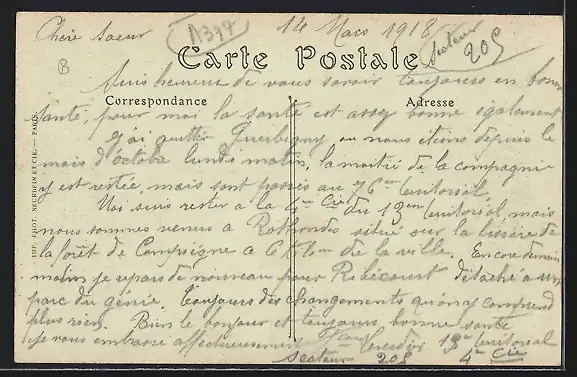 14 Mars 1918
Chère Sœur
A397
Secteur
205
B
Carte Postale
Suis heureux de vous savoir toujours en bonne
Correspondance
Adresse
santé, pour moi la santé est assez bonne également
j'ai quitter Guerbigny ou nous étions depuis le
mois d'octobre lundi matin, la moitié de la compagnie
y est restée, mais sont passés au 76em territorial,
Moi suis rester a la 4em Cie du 13em territorial, mais
nous sommes venus a Rethondes situé sur la lisière de
la forêt de Compiègne a 6 Klom de la ville. Encore demain
matin je repars de nouveau pour Ribécourt détaché a un
parc du génie. Toujours des changements qu'on y comprend
plus rien. Bien le bonjour et toujours bonne santé
je vous embrasse affectueusement
13em territorial
secteur 205 4em Cie
IMP. PHOT. NEURDEIN ET CIE. — PARIS